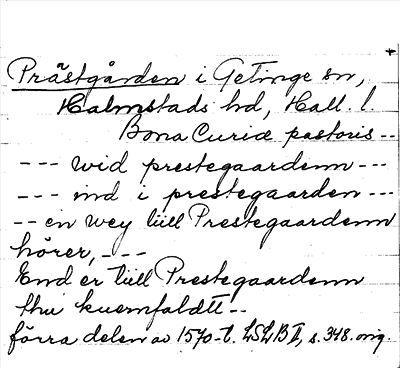 Prästgården i Getinge sn,
Halmstads hd, Hall. l.
Bona Curiæ pastoris --
--- wid prestegaardenn ---
--- ind i prestegaarden ---
-- en wey tiill Prestegaardenn
hörer, ---
End er tiill Prestegaardenn
thu kuernfaldtt --
förra delen av 1570-t. LSLB II, s. 348. orig.